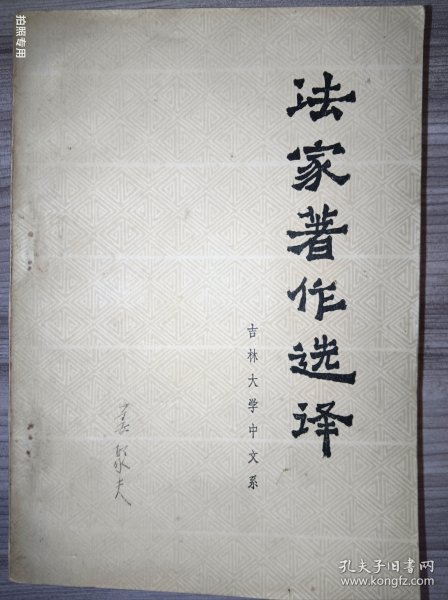 法家著作选译
吉林大学中文系
拍照专用
孔夫子旧书网
www.kongfz.com